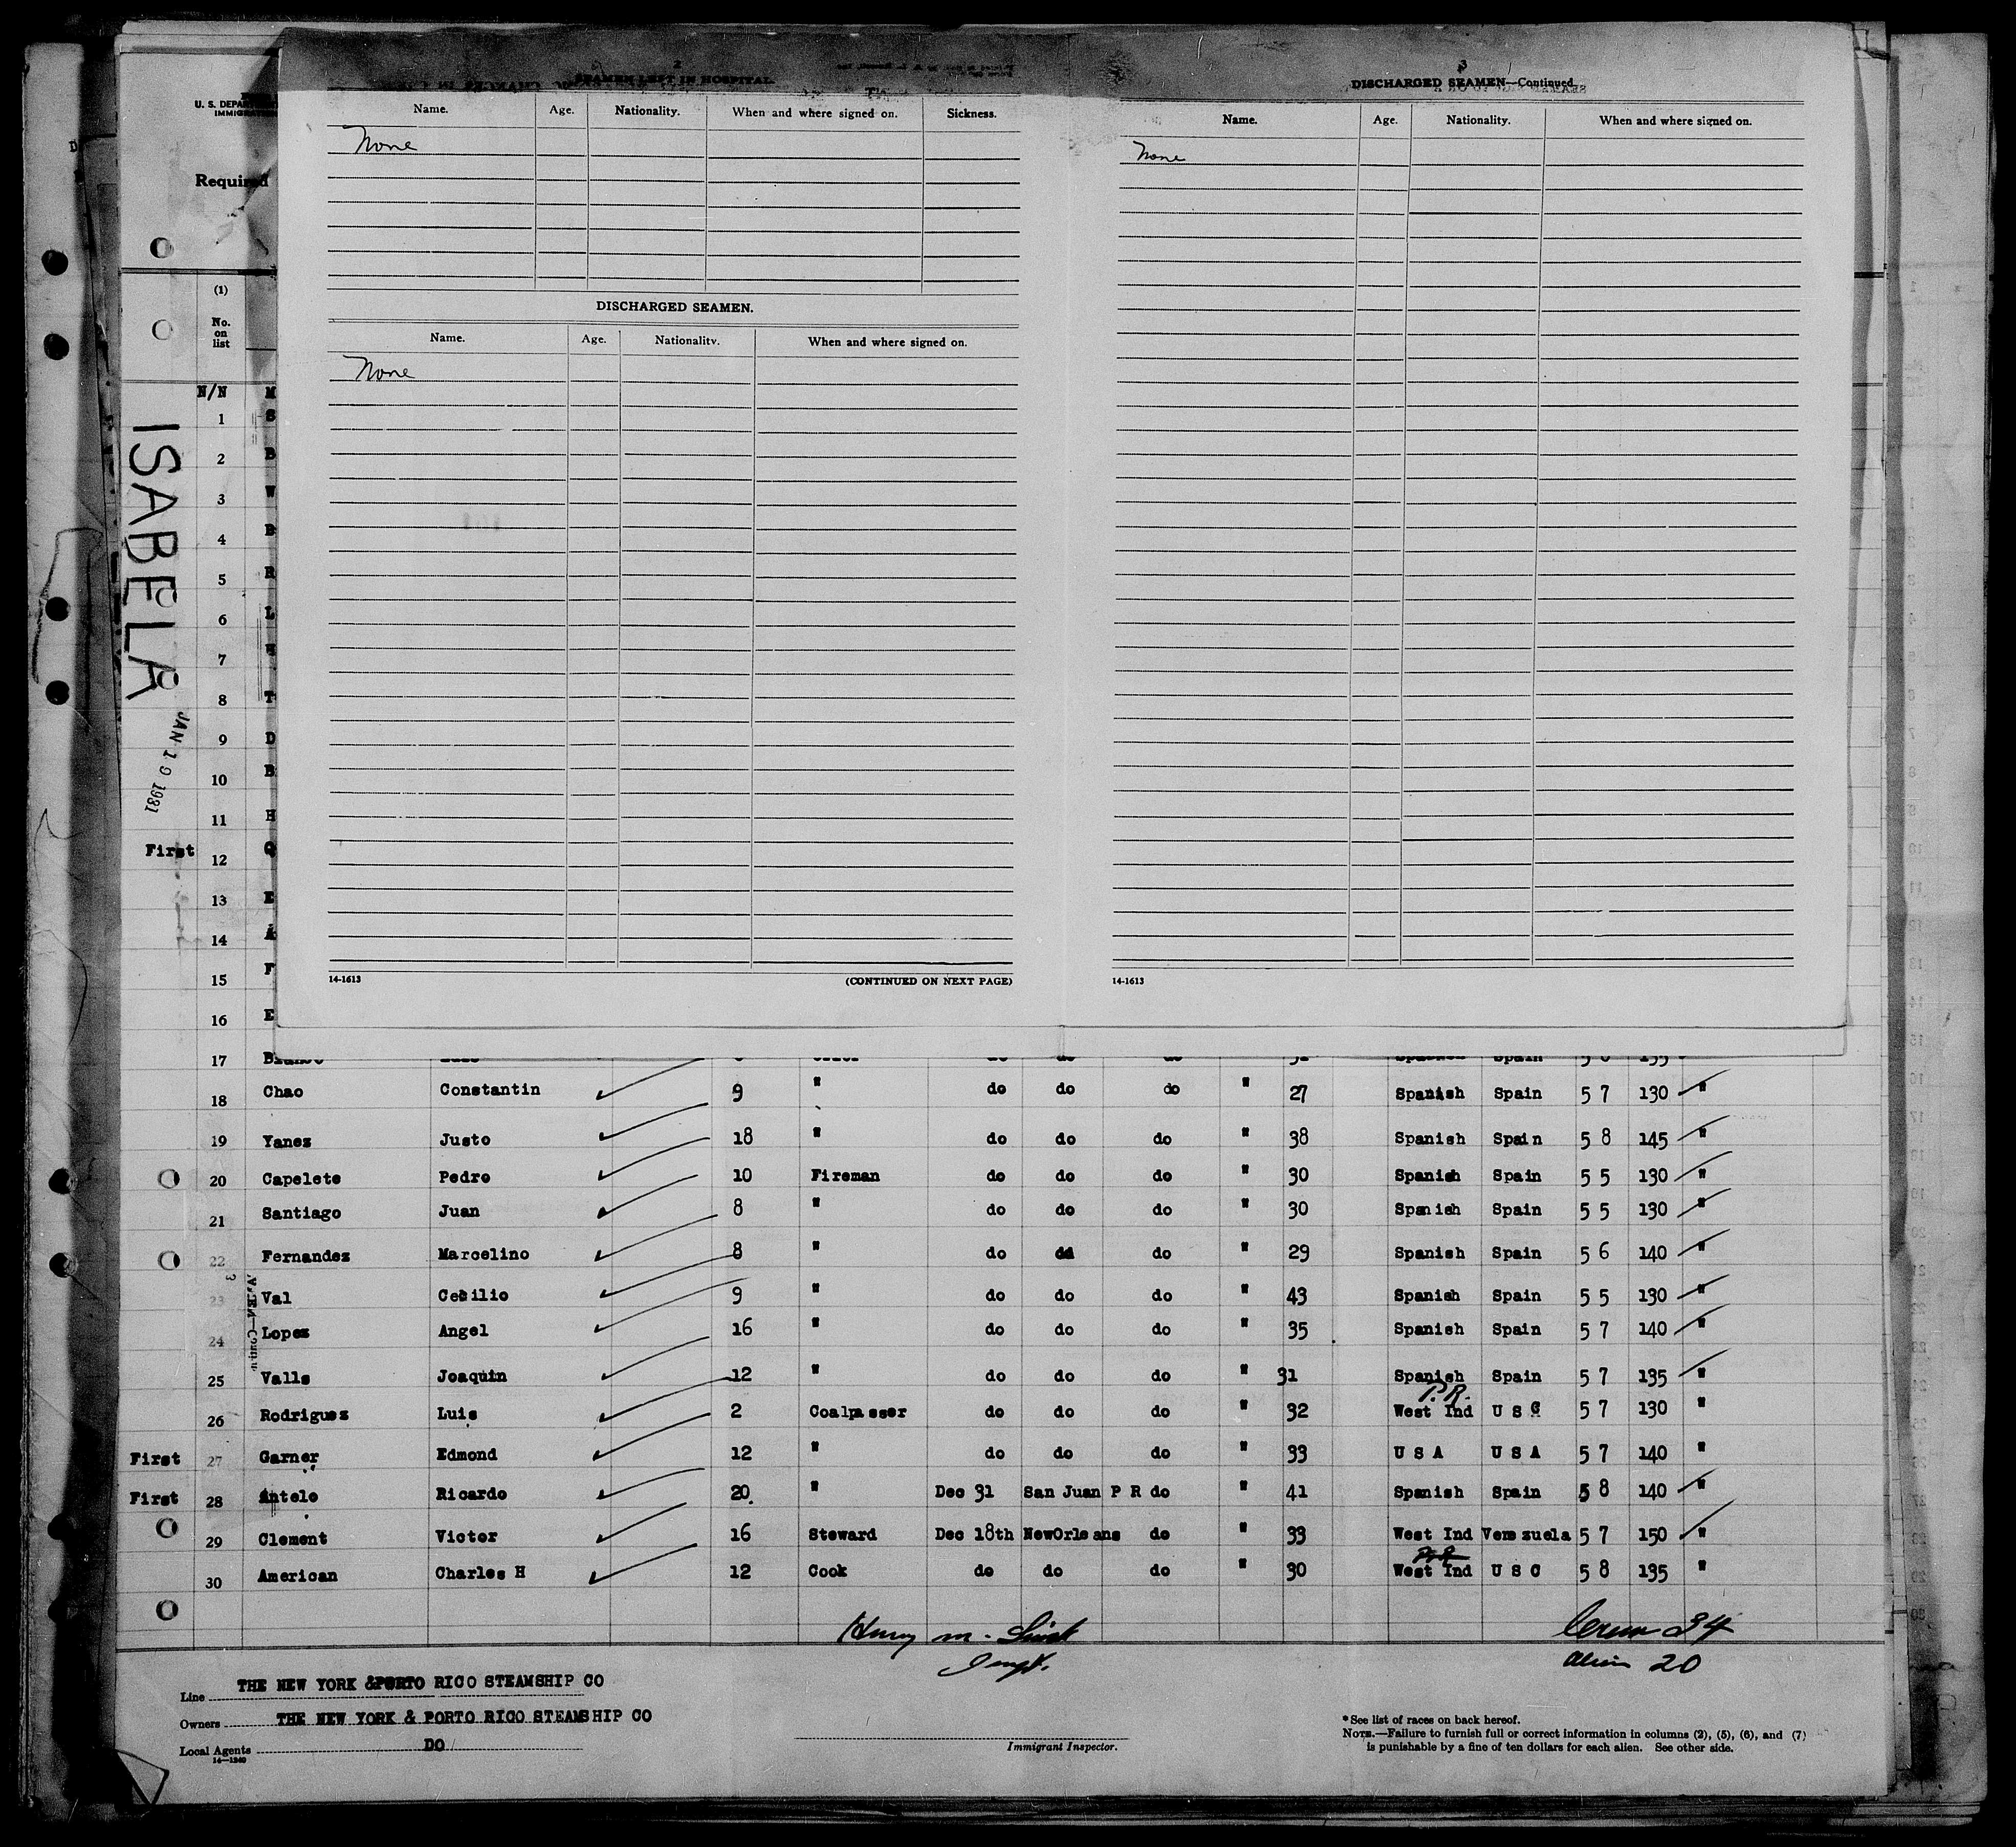 2
SEAMEN LEFT IN HOSPITAL
Name. Age. Nationality. When and where signed on. Sickness.
None
DISCHARGED SEAMEN.
Name. Age. Nationality. When and where signed on.
None
14-1613 (CONTINUED ON NEXT PAGE)
3
DISCHARGED SEAMEN—Continued
Name. Age. Nationality. When and where signed on.
None
14-1613
U. S. DEPAR
IMMIGRA
Required
(1)
No.
on
list
ISABELA
JAN 19 1931
N/N M
1 S
2 B
3 W
4 B
5 R
6 L
7
8 T
9 D
10 B
11 H
First 12 Q
13 E
14 A
15 F
16 E
17
18 Chao Constantin 9 " do do do " 27 Spanish Spain 5 7 130 "
19 Yanez Justo 18 " do do do " 38 Spanish Spain 5 8 145 "
20 Capelete Pedro 10 Fireman do do do " 30 Spanish Spain 5 5 130 "
21 Santiago Juan 8 " do do do " 30 Spanish Spain 5 5 130 "
22 Fernandez Marcelino 8 " do do do " 29 Spanish Spain 5 6 140 "
23 Val Cecilio 9 " do do do " 43 Spanish Spain 5 5 130 "
24 Lopez Angel 16 " do do do " 35 Spanish Spain 5 7 140 "
25 Valls Joaquin 12 " do do do " 31 Spanish Spain 5 7 135 "
P.R.
26 Rodriguez Luis 2 Coalpasser do do do " 32 West Ind U S C 5 7 130 "
First 27 Garner Edmond 12 " do do do " 33 U S A U S A 5 7 140 "
First 28 Antelo Ricardo 20 " Dec 31 San Juan P R do " 41 Spanish Spain 5 8 140 "
29 Clement Victor 16 Steward Dec 18th NewOrleans do " 33 West Ind Venezuela 5 7 150 "
30 American Charles H 12 Cook do do do " 30 West Ind U S C 5 8 135 "
Henry M.
Crew 34
Alien 20
Line THE NEW YORK &PORTO RICO STEAMSHIP CO
Owners THE NEW YORK & PORTO RICO STEAMSHIP CO
Local Agents DO
14—1240
Immigrant Inspector.
*See list of races on back hereof.
NOTE.—Failure to furnish full or correct information in columns (2), (5), (6), and (7)
is punishable by a fine of ten dollars for each alien. See other side.